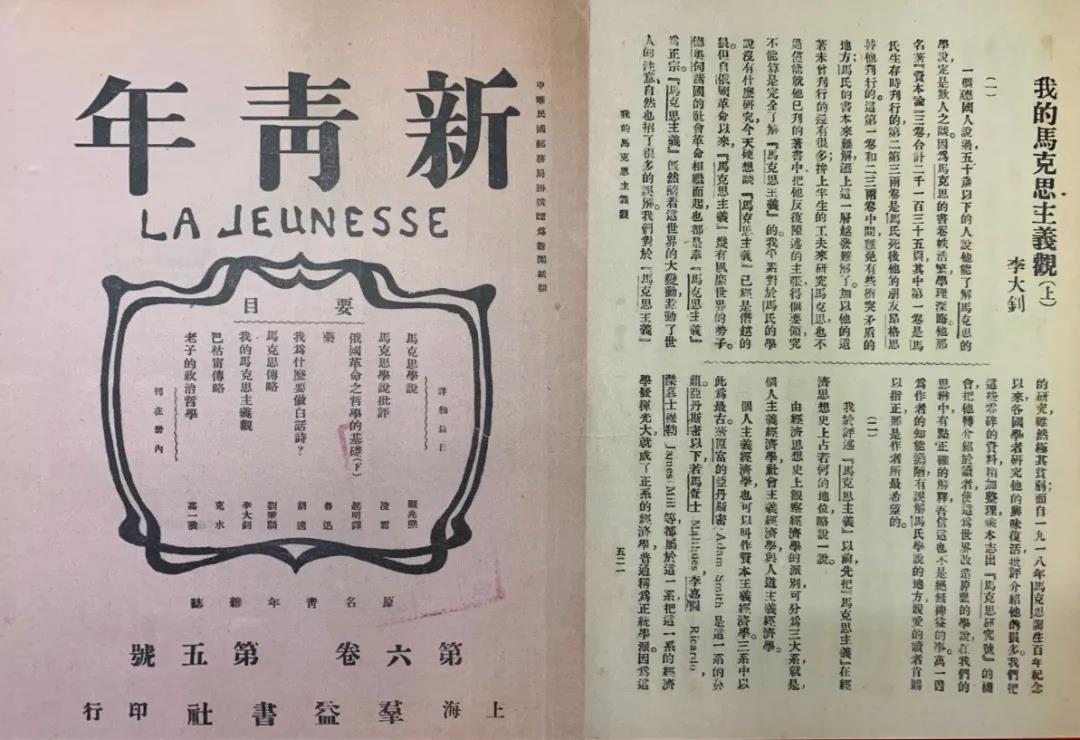 新青年
LA JEUNESSE
中華民國郵務局掛號認為新聞紙類
要目
詳細目
馬克思學說 顧兆熊
馬克思學說批評 凌霜
俄國革命之哲學的基礎(下) 起明譯
藥 魯迅
我為什麼要做白話詩？ 胡適
馬克思傳略 劉秉麟
我的馬克思主義觀 李大釗
巴枯甯傳略 克水
老子的政治哲學 高一涵
刊在册內
原名青年雜誌
第六卷第五號
上海羣益書社印行
我的馬克思主義觀(上)
李大釗
(一)
一個德國人說過五十歲以下的人說他能了解馬克思的
學說定是欺人之談因為馬克思的書卷帙浩繁學理深晦他那
名著『資本論』三卷合計二千一百三十五頁其中第一卷是馬
氏生存時刊行的第二第三兩卷是馬氏死後他的朋友昂格思
替他刊行的這第一卷和二三兩卷中間難免有些衝突矛盾的
地方馬氏的書本來難解添上這一層越發難解了加以他的遺
著未曾刊行的還有很多拚上半生的工夫來研究馬克思也不
過僅能就他已刊的著書中把他反復陳述的主張得個要領究
不能算是完全了解『馬克思主義』的。我平素對於馬氏的學
說沒有什麼研究今天硬想談『馬克思主義』已經是僭越的
很。但自俄國革命以來『馬克思主義』幾有風靡世界的勢子
德奧匈諸國的社會革命相繼而起也都是奉『馬克思主義』
為正宗。『馬克思主義』既然隨着這世界的大變動惹動了世
人的注意自然也招了很多的誤解。我們對於『馬克思主義』
我的馬克思主義觀
的研究雖然極其貧弱而自一九一八年馬克思誕生百年紀念
以來各國學者研究他的興味復活批評介紹他的很多。我們把
這些零碎的資料稍加整理乘本志出『馬克思研究號』的機
會把他轉介紹於讀者使這為世界改造原動的學說在我們的
思辨中有點正確的解釋吾信這也不是絕無裨益的事。萬一因
為作者的知能譾陋有誤解馬氏學說的地方親愛的讀者肯賜
以指正那是作者所最希望的。
(二)
我於評述『馬克思主義』以前先把『馬克思主義』在經
濟思想史上占若何的地位略說一說。
由經濟思想史上觀察經濟學的派別可分為三大系就是
個人主義經濟學社會主義經濟學與人道主義經濟學。
個人主義經濟學也可以叫作資本主義經濟學。三系中以
此為最古。著原富的亞丹斯密 Adam Smith 是這一系的鼻
祖。亞丹斯密以下若馬查士 Malthus, 李嘉圖 Ricardo,
傑慕士穆勒 James Mill 等都屬於這一系。把這一系的經濟
學發揮光大就成了正系的經濟學普通稱為正統學派因為這
五二一